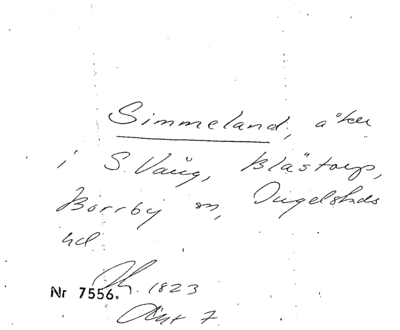 Simmeland, åker
i S. Vång, Blästorp,
Borrby sn, Ingelstads
hd
Nr 7556. 1823
Akt 7